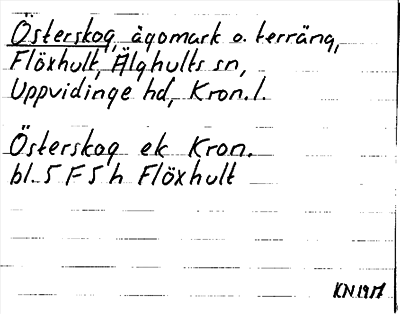 Österskog, ägomark o. terräng,
Flöxhult, Älghults sn,
Uppvidinge hd, Kron.l.
Österskog ek Kron.
bl. 5 F 5 h Flöxhult